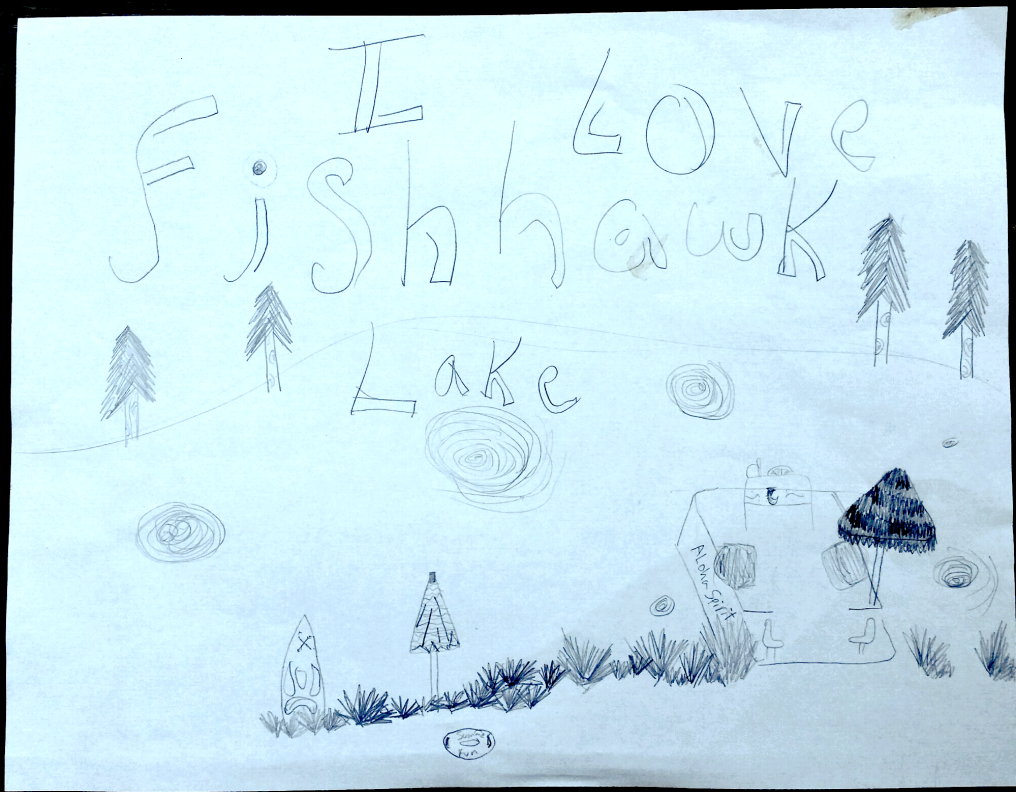 I Love
Fishhawk
Lake
Aloha Spirit
Fun